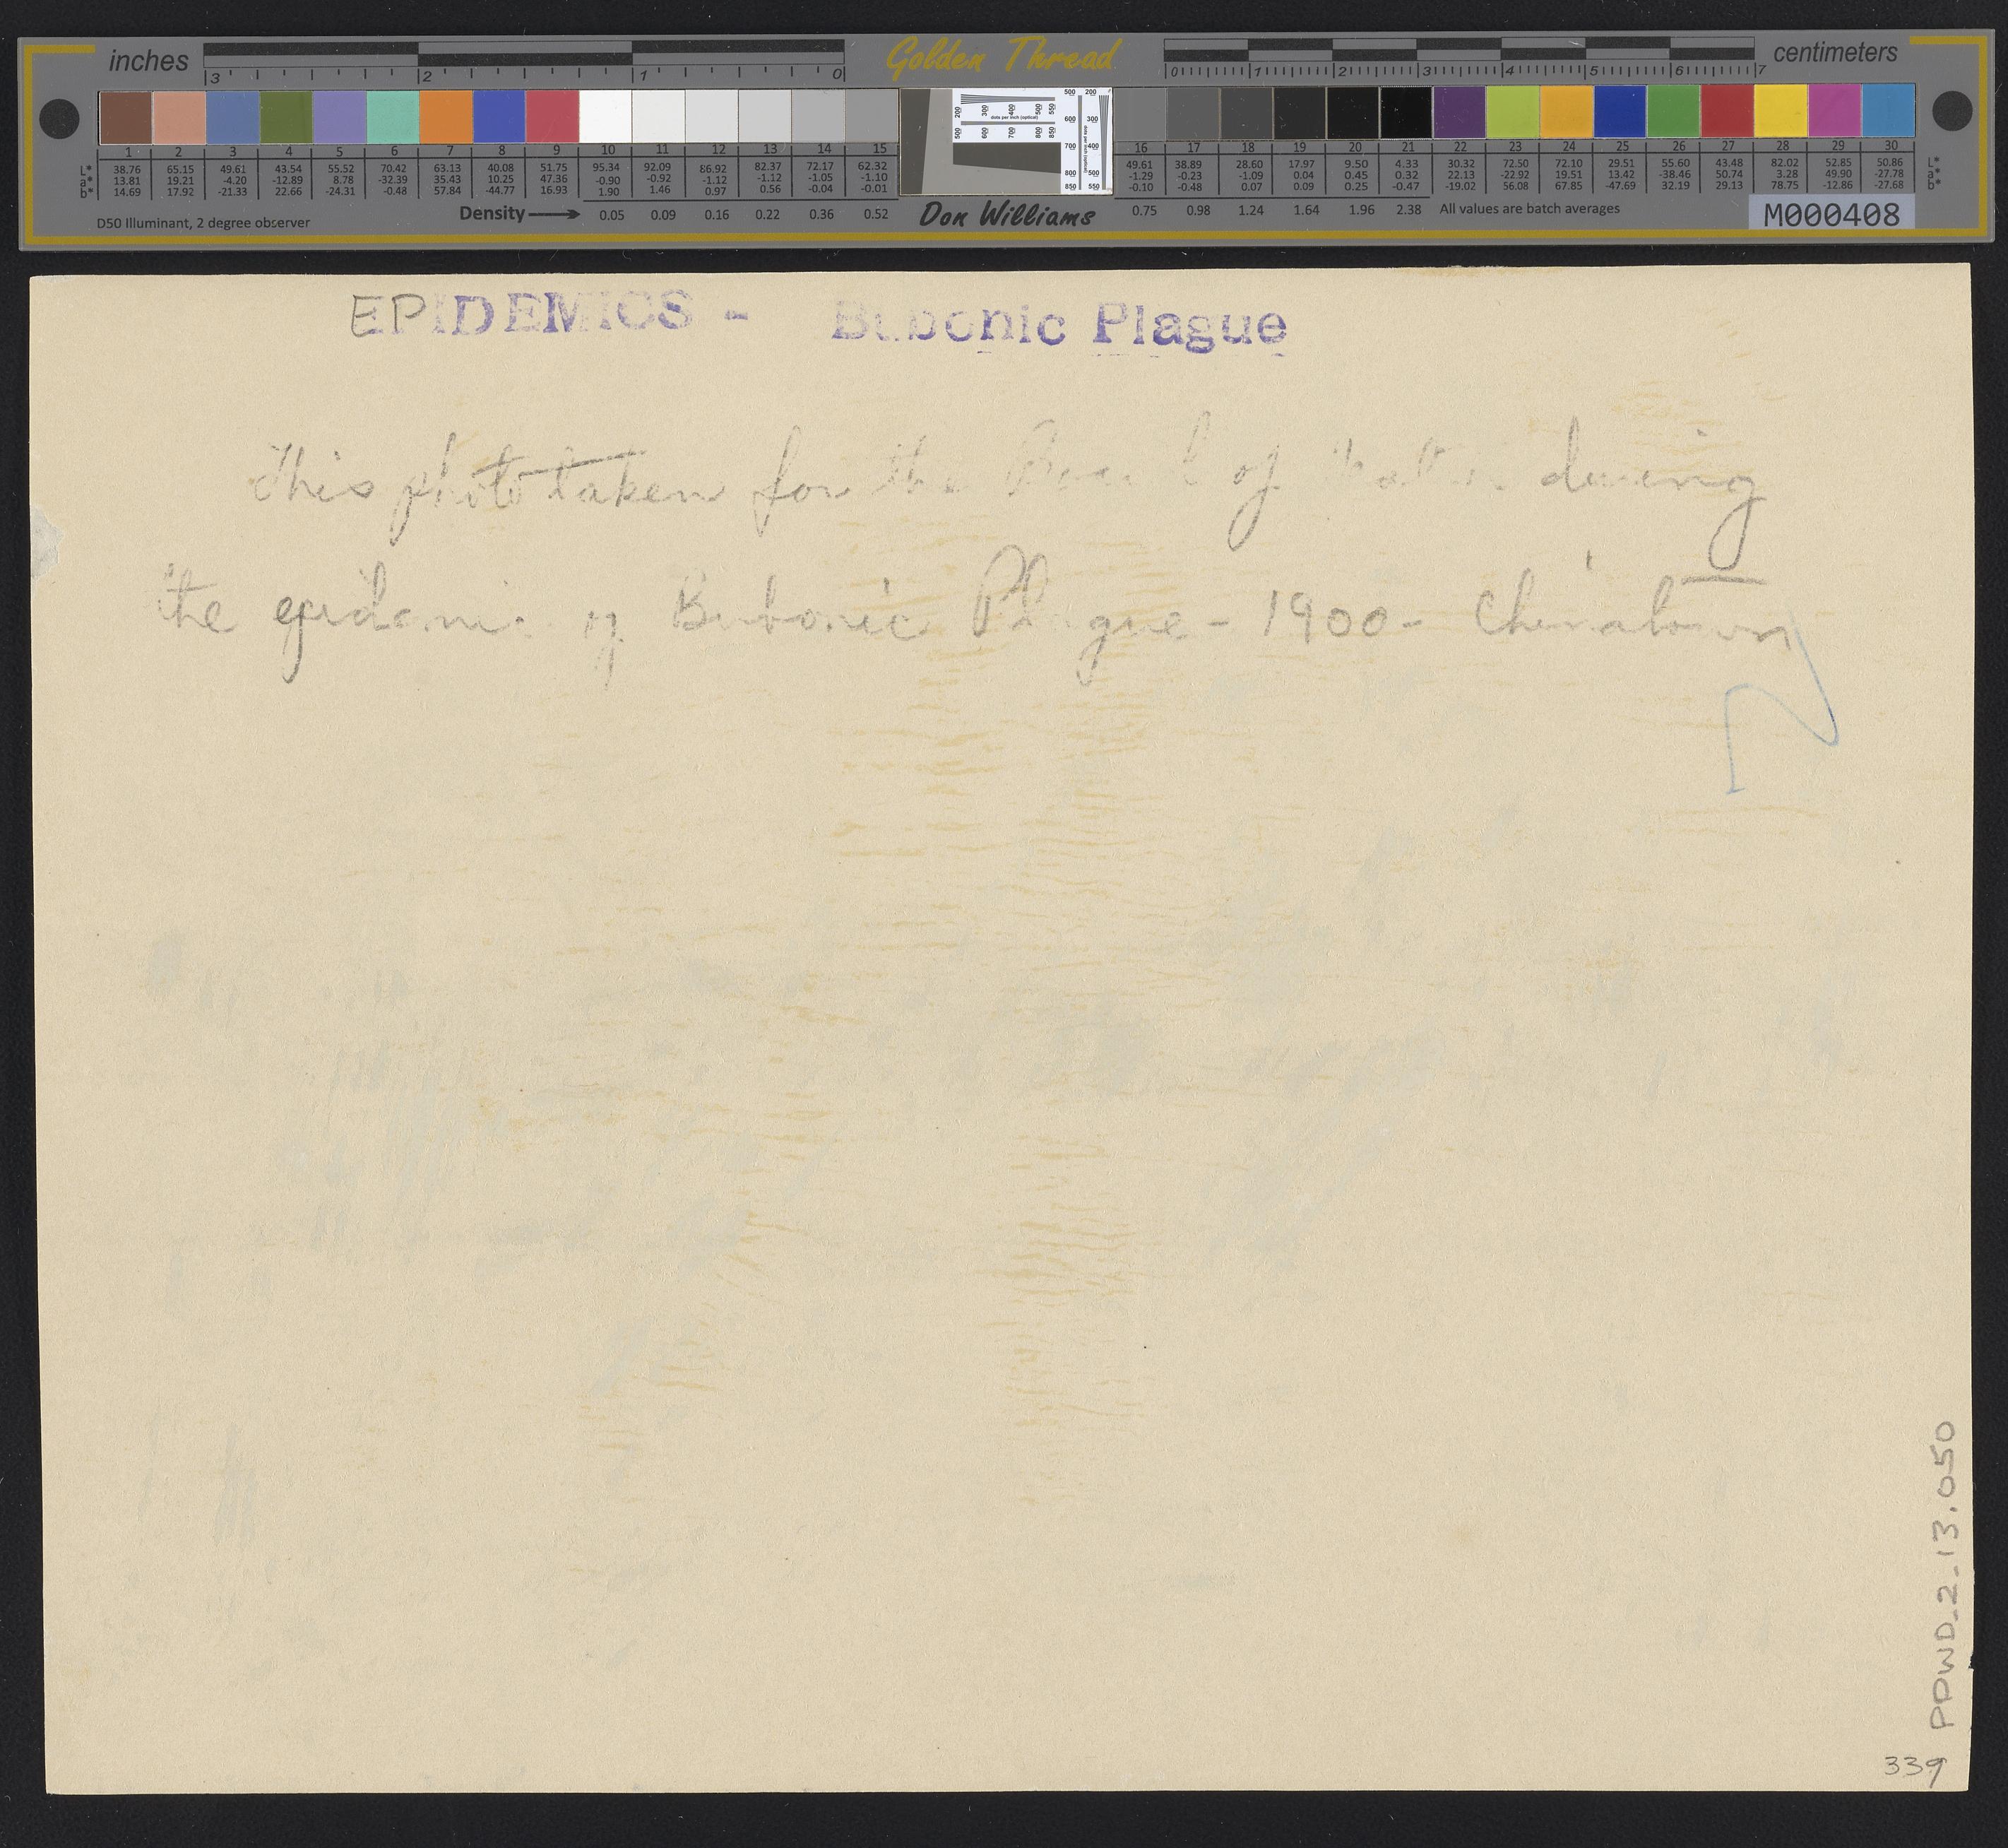 inches
3 2 1 0
Golden Thread
0 1 2 3 4 5 6 7
centimeters
200 300 400 500 550
dots per inch (optical)
500 600 700 800 850
1 2 3 4 5 6 7 8 9 10 11 12 13 14 15
L* 38.76 65.15 49.61 43.54 55.52 70.42 63.13 40.08 51.75 95.34 92.09 86.92 82.37 72.17 62.32
a* 13.81 19.21 -4.20 -12.89 8.78 -32.39 35.43 10.25 47.36 -0.90 -0.92 -1.12 -1.12 -1.05 -1.10
b* 14.69 17.92 -21.33 22.66 -24.31 -0.48 57.84 -44.77 16.93 1.90 1.46 0.97 0.56 -0.04 -0.01
16 17 18 19 20 21 22 23 24 25 26 27 28 29 30
49.61 38.89 28.60 17.97 9.50 4.33 30.32 72.50 72.10 29.51 55.60 43.48 82.02 52.85 50.86 L*
-1.29 -0.23 -1.09 0.04 0.45 0.32 22.13 -22.92 19.51 13.42 -38.46 50.74 3.28 49.90 -27.78 a*
-0.10 -0.48 0.07 0.09 0.25 -0.47 -19.02 56.08 67.85 -47.69 32.19 29.13 78.75 -12.86 -27.68 b*
D50 Illuminant, 2 degree observer
Density 0.05 0.09 0.16 0.22 0.36 0.52
Don Williams
0.75 0.98 1.24 1.64 1.96 2.38 All values are batch averages
M000408
EPIDEMICS - Bubonic Plague
This photo taken for the Board of Health during
the epidemic of Bubonic Plague - 1900 - Chinatown
PPWD_2_13.050
339